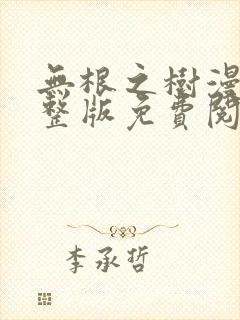 無根之樹漫
整版免費閱
李承哲